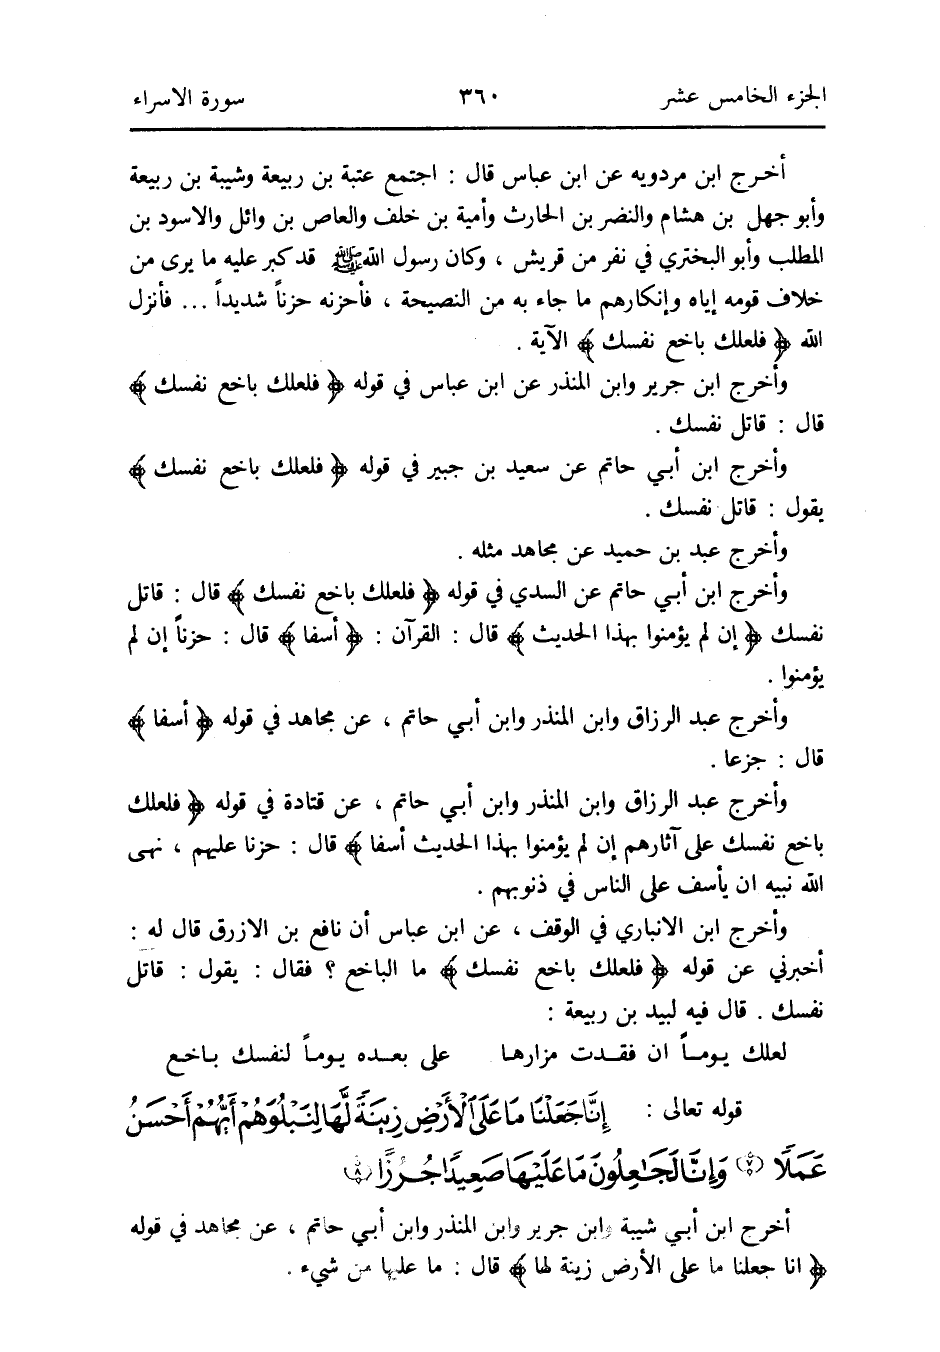 الجزء الخامس عشر ٣٦٠ سورة الاسراء
أخرج ابن مردويه عن ابن عباس قال : اجتمع عتبة بن ربيعة وشيبة بن ربيعة
وأبو جهل بن هشام والنضر بن الحارث وأمية بن خلف والعاص بن وائل والاسود بن
المطلب وأبو البختري في نفر من قريش ، وكان رسول الله ﷺ قد كبر عليه ما يرى من
خلاف قومه إياه وإنكارهم ما جاء به من النصيحة ، فأحزنه حزناً شديداً ... فأنزل
الله ﴿ فلعلك باخع نفسك ﴾ الآية .
وأخرج ابن جرير وابن المنذر عن ابن عباس في قوله ﴿ فلعلك باخع نفسك ﴾
قال : قاتل نفسك .
وأخرج ابن أبي حاتم عن سعيد بن جبير في قوله ﴿ فلعلك باخع نفسك ﴾
يقول : قاتل نفسك .
وأخرج عبد بن حميد عن مجاهد مثله .
وأخرج ابن أبي حاتم عن السدي في قوله ﴿ فلعلك باخع نفسك ﴾ قال : قاتل
نفسك ﴿ إن لم يؤمنوا بهذا الحديث ﴾ قال : القرآن : ﴿ أسفا ﴾ قال : حزناً إن لم
يؤمنوا .
وأخرج عبد الرزاق وابن المنذر وابن أبي حاتم ، عن مجاهد في قوله ﴿ أسفا ﴾
قال : جزعا .
وأخرج عبد الرزاق وابن المنذر وابن أبي حاتم ، عن قتادة في قوله ﴿ فلعلك
باخع نفسك على آثارهم إن لم يؤمنوا بهذا الحديث أسفا ﴾ قال : حزنا عليهم ، نهى
الله نبيه ان يأسف على الناس في ذنوبهم .
وأخرج ابن الانباري في الوقف ، عن ابن عباس أن نافع بن الازرق قال له :
أخبرني عن قوله ﴿ فلعلك باخع نفسك ﴾ ما الباخع ؟ فقال : يقول : قاتل
نفسك . قال فيه لبيد بن ربيعة :
لعلك يوماً ان فقدت مزارها على بعده يوماً لنفسك باخع
قوله تعالى : إِنَّا جَعَلْنَا مَا عَلَى ٱلْأَرْضِ زِينَةً لَّهَا لِنَبْلُوَهُمْ أَيُّهُمْ أَحْسَنُ
عَمَلًا ﴿٧﴾ وَإِنَّا لَجَٰعِلُونَ مَا عَلَيْهَا صَعِيدًا جُرُزًا ﴿٨﴾
أخرج ابن أبي شيبة وابن جرير وابن المنذر وابن أبي حاتم ، عن مجاهد في قوله
﴿ انا جعلنا ما على الأرض زينة لها ﴾ قال : ما عليها من شيء .